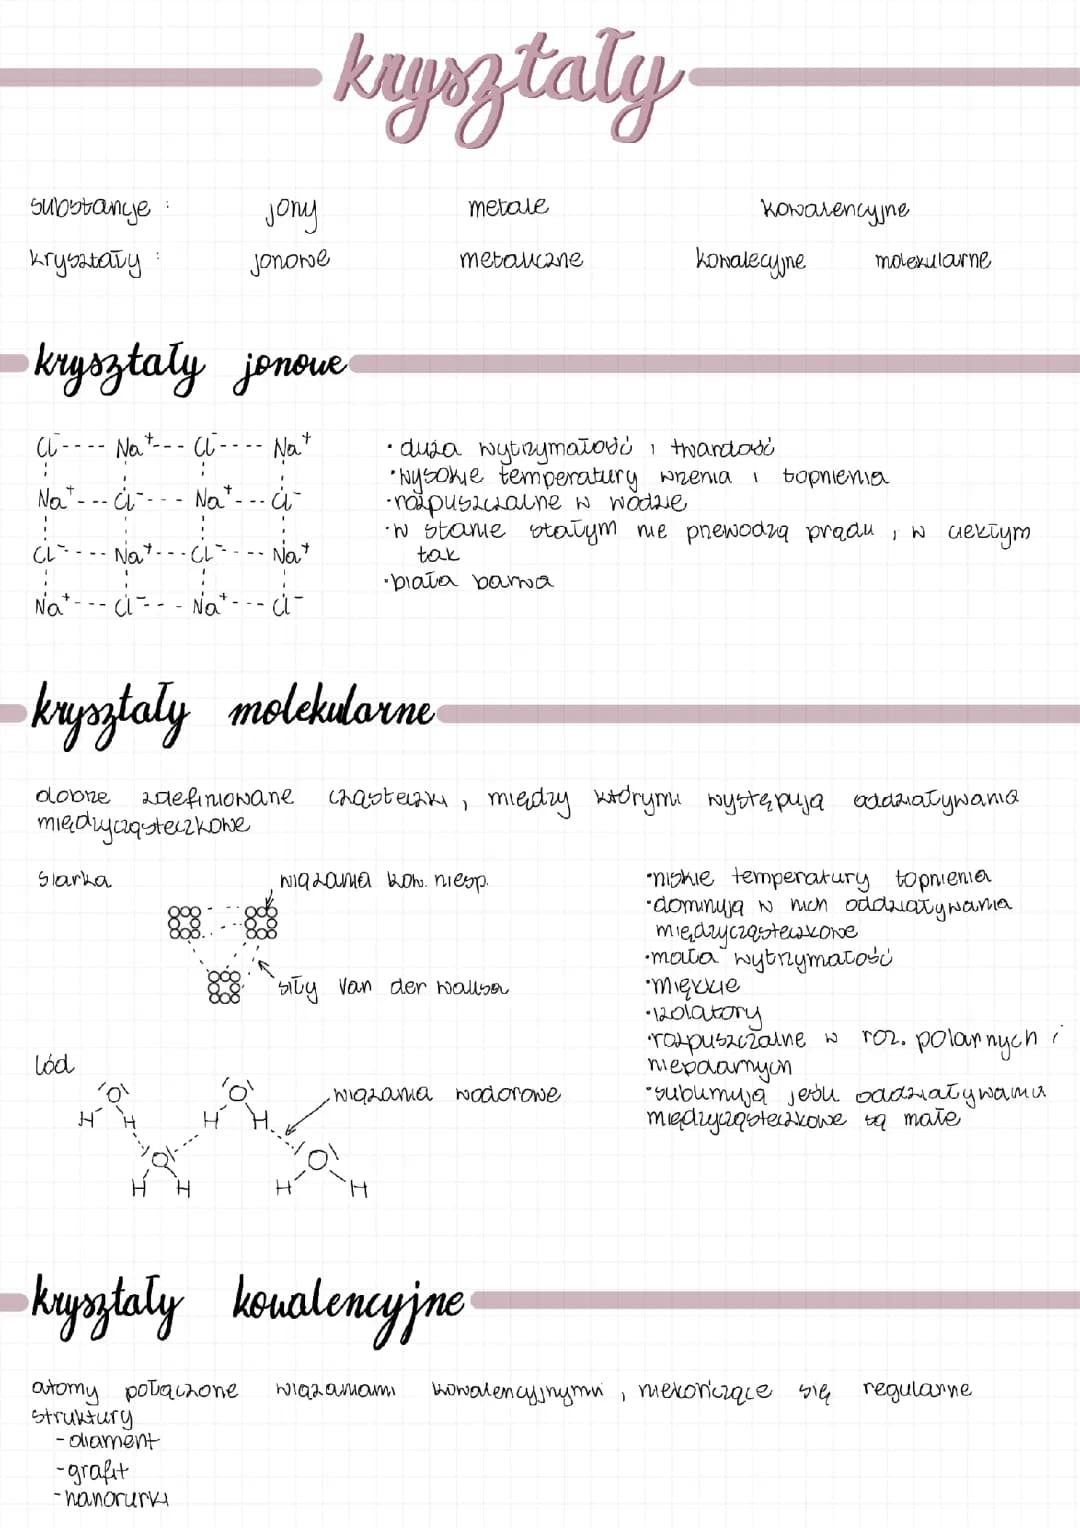 kryształy
substancje : jony metale kowalencyjne
kryształy : jonowe metaliczne kowalecyjne molekularne
kryształy jonowe
Cl⁻---- Na⁺--- Cl⁻---- Na⁺
Na⁺--- Cl⁻--- Na⁺--- Cl⁻
Cl⁻---- Na⁺--- Cl⁻---- Na⁺
Na⁺--- Cl⁻--- Na⁺--- Cl⁻
• duża wytrzymałość i twardość
• wysokie temperatury wrzenia i topnienia
• rozpuszczalne w wodzie
• w stanie stałym nie przewodzą prądu , w ciekłym
tak
• biała barwa
kryształy molekularne
dobrze zdefiniowane cząsteczki , między którymi występują oddziaływania
międzycząsteczkowe
siarka
wiązania kow. niesp.
siły van der Wallsa
lód
wiązania wodorowe
O O
H H H H
O O
H H H H
• niskie temperatury topnienia
• dominują w nich oddziaływania
międzycząsteczkowe
• mała wytrzymałość
• miękkie
• izolatory
• rozpuszczalne w roz. polarnych i
• sublimują jeśli oddziaływania
międzycząsteczkowe są małe
kryształy kowalencyjne
atomy połączone wiązaniami kowalencyjnymi , niekończące się regularne
struktury
- diament
- grafit
- nanorurki